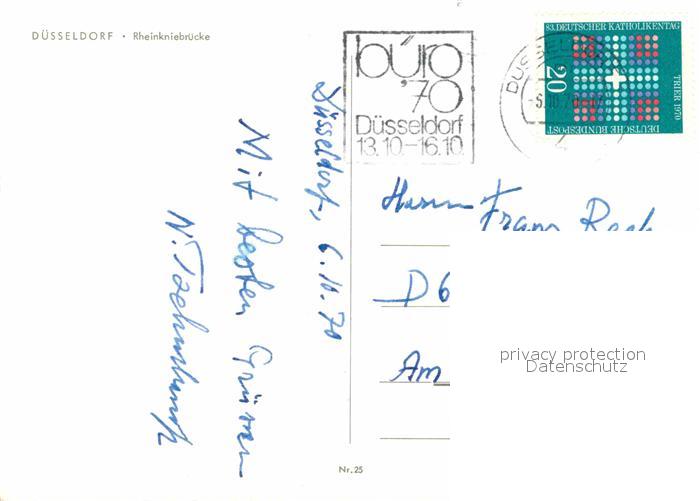 DÜSSELDORF · Rheinkniebrücke
büro
'70
Düsseldorf
13.10.–16.10.
DÜSSEL
-6.10.70
83. DEUTSCHER KATHOLIKENTAG
TRIER 1970
DEUTSCHE BUNDESPOST
20
Düsseldorf, 6.10.70
Mit besten Grüssen
N.
Herrn Franz
D 6
Am
privacy protection
Datenschutz
Nr. 25